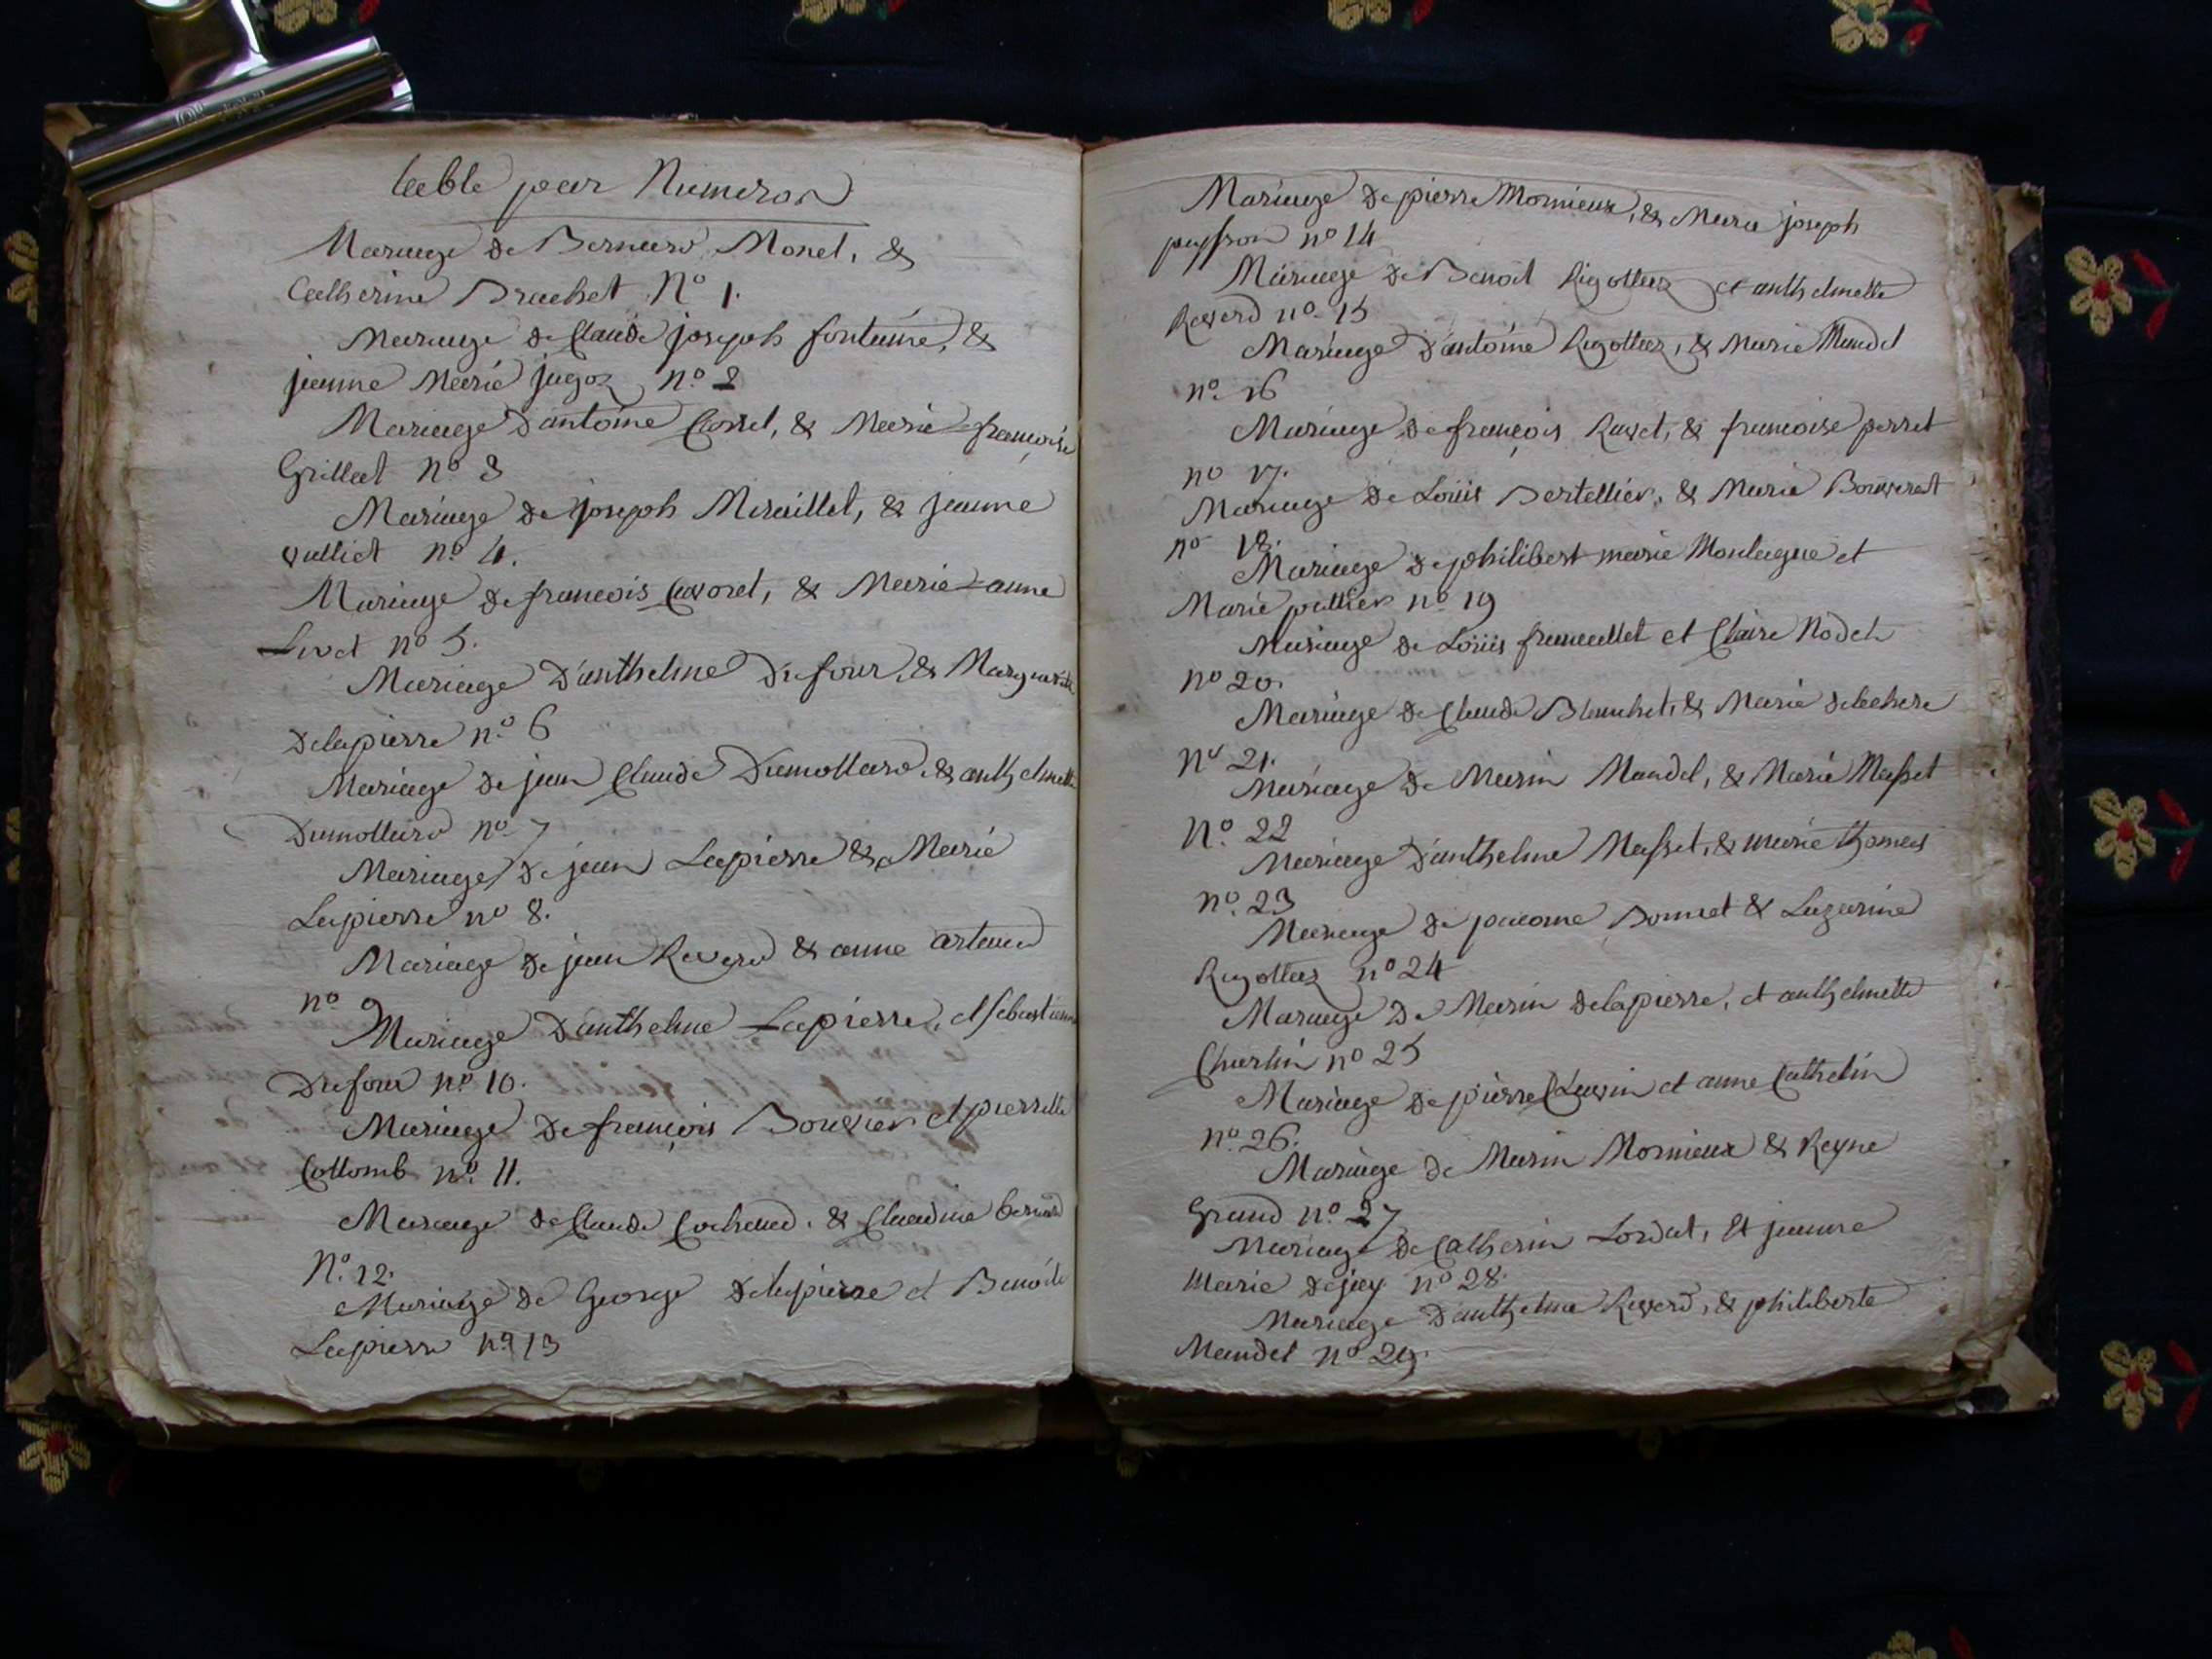 table par Numeros
Mariage de Bernard Monet, &
Catherine Brachet N° 1.
Mariage de Claude joseph fontaine, &
jeanne Marie jugoz n° 2
Mariage d'antoine Carrel, & Marie françoise
Grillet n° 3
Mariage de joseph Miraillet, & jeanne
vulliet n° 4.
Mariage de francois Cavoret, & Marie-anne
Livet n° 5.
Mariage D'anthelme Dufour, & Marguerite
Delapierre n° 6
Mariage de jean Claude Dumollard, & anthelmette
Dumollard n° 7
Mariage de jean Lapierre & Marie
Lapierre n° 8.
Mariage de jean Reverd & anne artaud
n° 9
Mariage D'anthelme Lapierre, et sebastienne
Dufour n° 10.
Mariage De françois Bouvier et pierrette
Collomb n° 11.
Mariage de Claude Cochard, & Claudine bernard
N° 12.
Mariage de George delapierre et Benoite
Lapierre n° 13
Mariage De pierre Mornieux, & Marie joseph
peysson n° 14
Mariage de Benoit Rigottaz et anthelmette
Reverd n° 15
Mariage D'antoine Rigottaz, & Marie Mandel
n° 16
Mariage de françois Ravet, & francoise perret
n° 17.
Mariage de Loüis Bertellier, & Marie Bouverat
n° 18.
Mariage de philibert marie Montagne et
Marie pettier n° 19
Mariage de Loüis francallet et Claire Nodet
n° 20.
Mariage de Claude Blanchet, & Marie delachere
n° 21.
Mariage de Marin Mandel, & Marie Masset
N° 22
Mariage D'anthelme Masset, & marie thomas
n° 23
Mariage de pacome Bonnet & Lazarine
Rigottaz n° 24
Mariage De Marin delapierre, et anthelmette
Charlin n° 25
Mariage de pierre Clavin et anne Cathelin
n° 26.
Mariage de Marin Mornieux & Reyne
Grand n° 27
Mariage de Catherin Lordat, et jeanne
Marie dejey n° 28.
Mariage D'anthelme Reverd, & philiberte
Mandet n° 29.